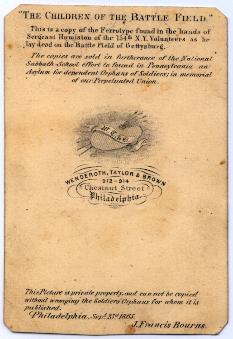 "The Children of the Battle Field."
This is a copy of the Ferrotype found in the hands of
Sergeant Humiston of the 154th N.Y. Volunteers as he
lay dead on the Battle Field of Gettysburg.
The copies are sold in furtherance of the National
Sabbath School effort to found in Pennsylvania an
Asylum for dependent Orphans of Soldiers; in memorial
of our Perpetuated Union.
WENDEROTH, TAYLOR & BROWN
912-914
Chestnut Street
Philadelphia
This Picture is private property, and can not be copied
without wronging the Soldiers' Orphans for whom it is
published.
Philadelphia, Sept. 23d 1865.
J. Francis Bourns.